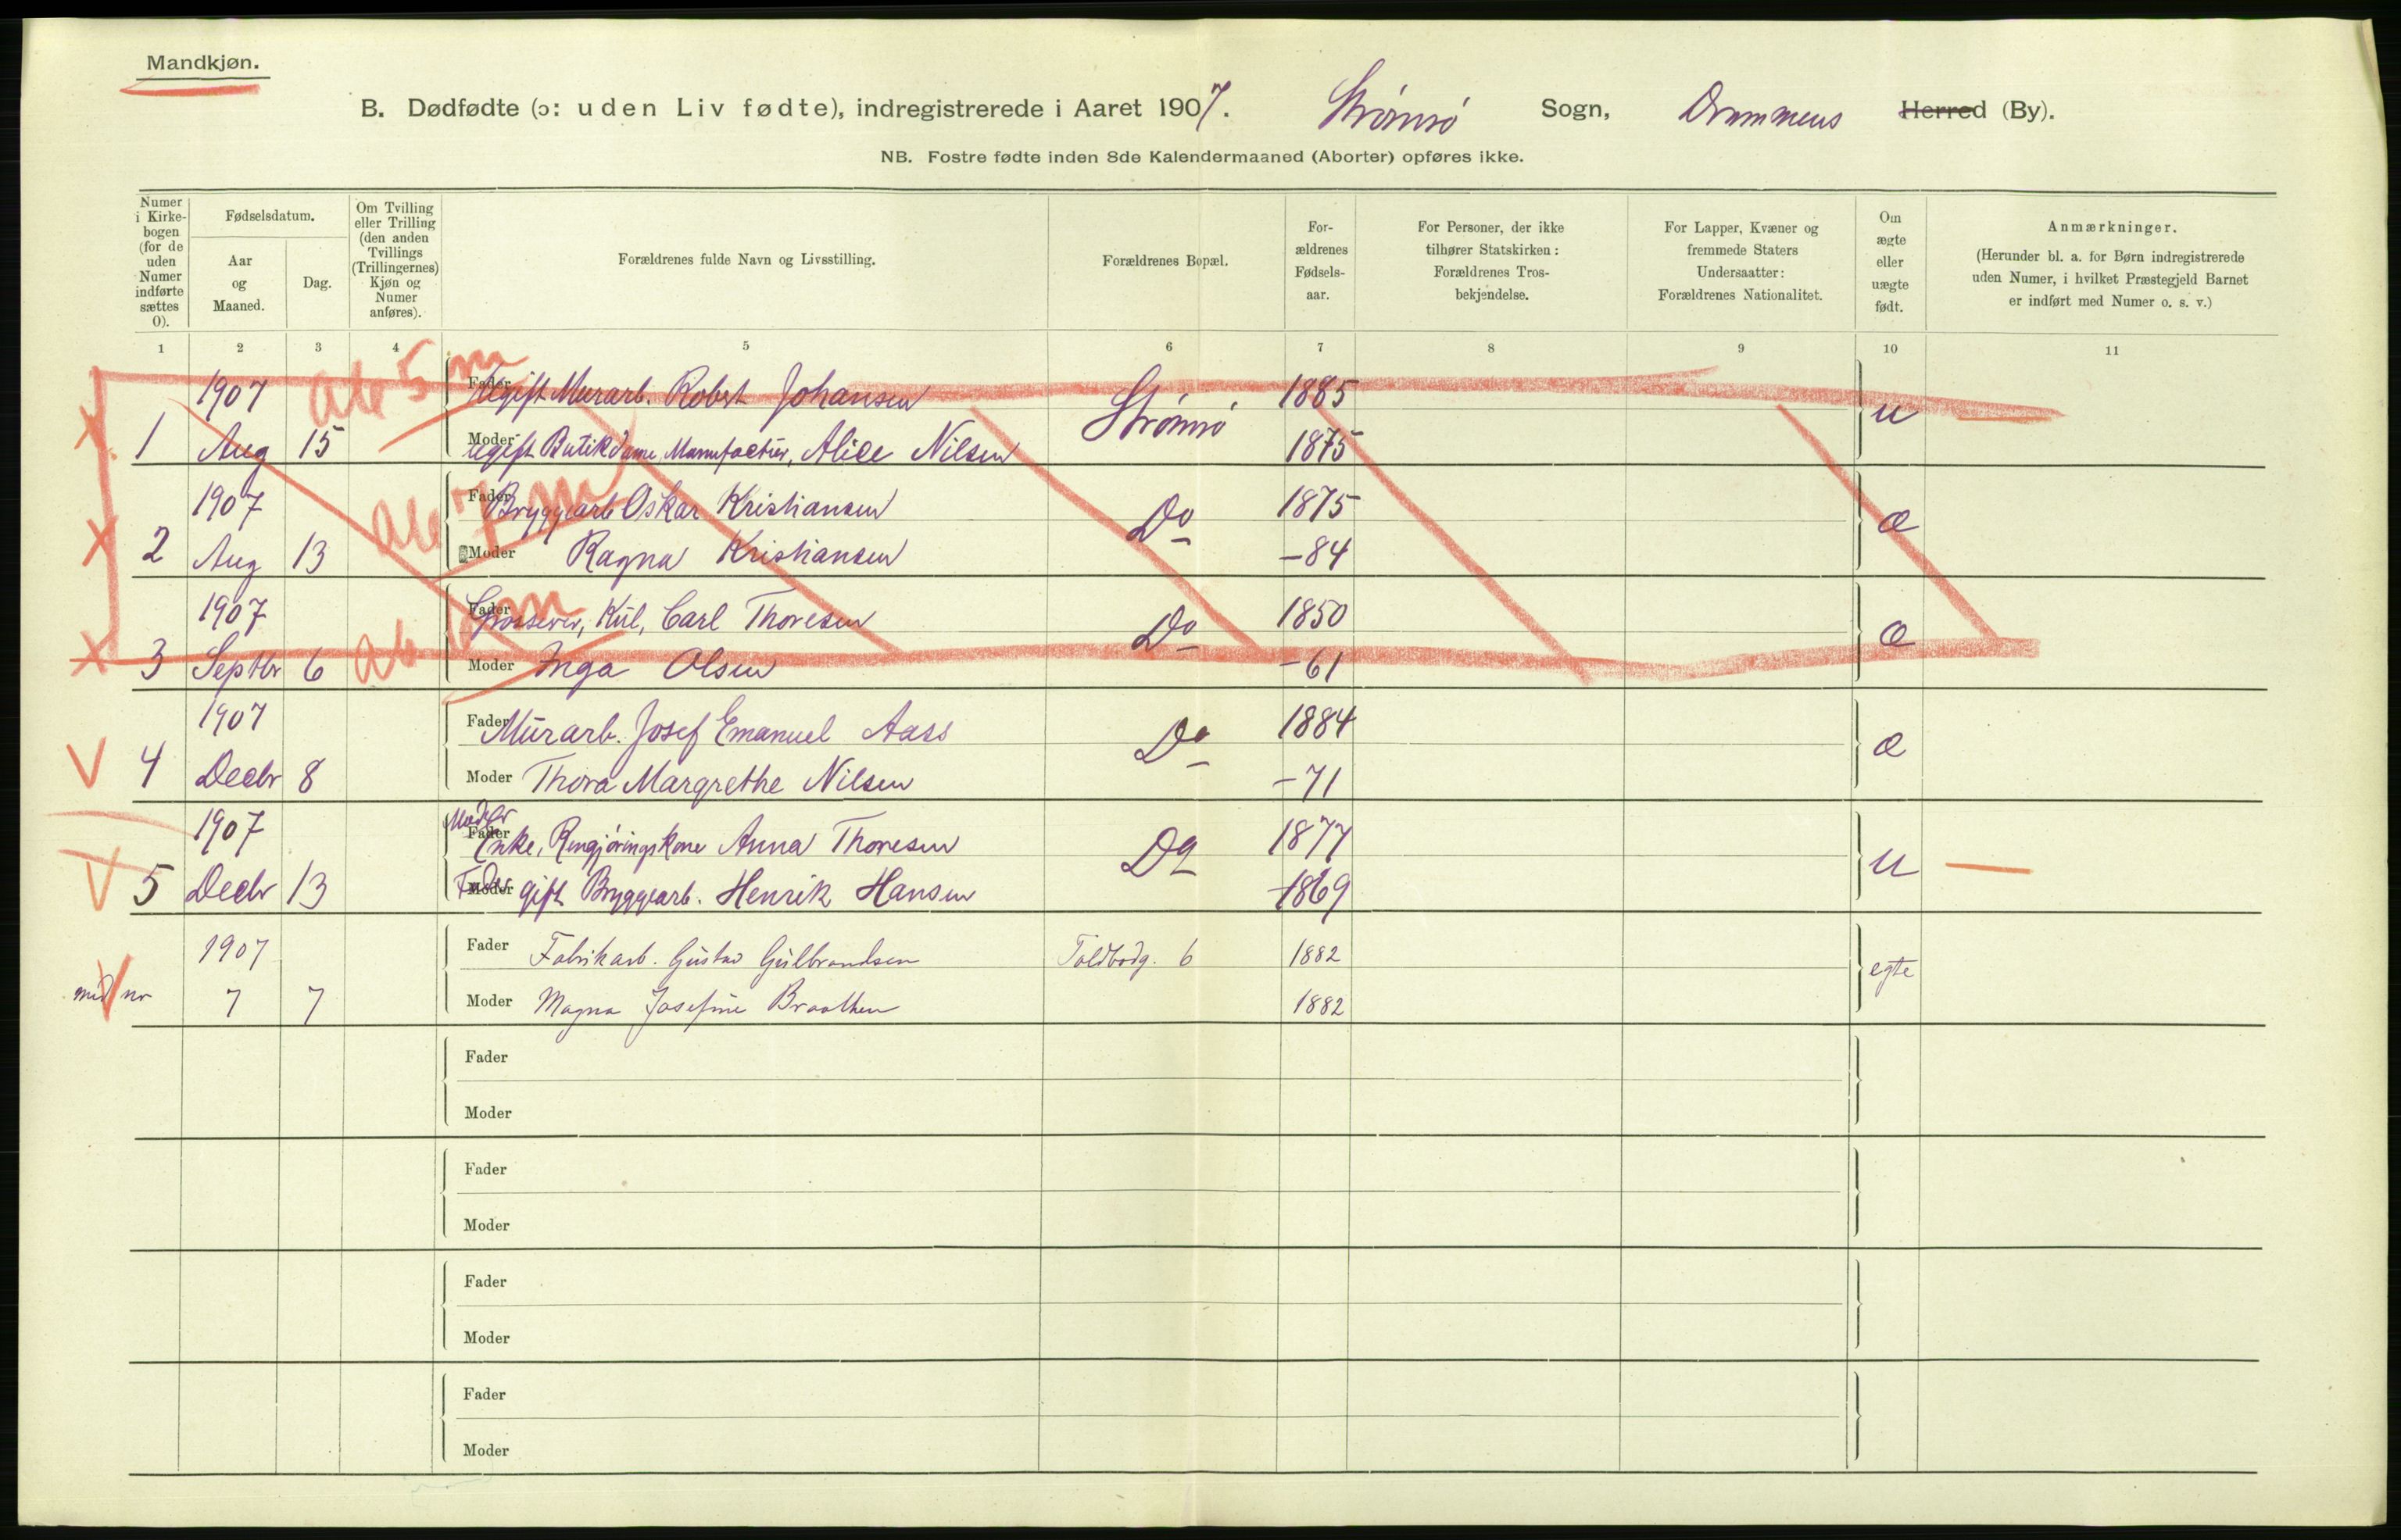 Mandkjøn.
B. Dødfødte (ɔ: uden Liv fødte), indregistrerede i Aaret 1907. Strømsø Sogn, Drammens Herred (By).
NB. Fostre fødte inden 8de Kalendermaaned (Aborter) opføres ikke.
Numer i Kirke-bogen (for de uden Numer indførte sættes 0).
Fødselsdatum.
Aar og Maaned.
Dag.
Om Tvilling eller Trilling (den anden Tvillings (Trillingernes) Kjøn og Numer anføres).
Forældrenes fulde Navn og Livsstilling.
Forældrenes Bopæl.
For-ældrenes Fødsels-aar.
For Personer, der ikke tilhører Statskirken: Forældrenes Tros-bekjendelse.
For Lapper, Kvæner og fremmede Staters Undersaatter: Forældrenes Nationalitet.
Om ægte eller uægte født.
Anmærkninger.
(Herunder bl. a. for Børn indregistrerede uden Numer, i hvilket Præstegjeld Barnet er indført med Numer o. s. v.)
1 2 3 4 5 6 7 8 9 10 11
1907 ab 5 m Fader Ugift Murarb. Robert Johansen Strømsø 1885 u
1 Aug 15 Moder ugift Butikdame, Manufactur, Alice Nilsen 1875
1907 ab 7 m Fader Bryggearb Oskar Kristiansen Do 1875 æ
2 Aug 13 Moder Ragna Kristiansen -84
1907 ab m Fader Grosserer, Kul, Carl Thoresen Do 1850 æ
3 Septbr 6 Moder Inga Olsen -61
1907 Fader Murarb. Josef Emanuel Aass Do 1884 æ
4 Decbr 8 Moder Thora Margrethe Nilsen -71
1907 Moder Fader Enke, Rengjøringskone Anna Thoresen Do 1877 u
5 Decbr 13 Fader Moder gift Bryggearb. Henrik Hansen 1869
1907 Fader Fabrikarb. Gustav Gulbrandsen Toldbodg. 6 1882 egte
nr 7 7 Moder Magna Josefine Braathen 1882
Fader
Moder
Fader
Moder
Fader
Moder
Fader
Moder